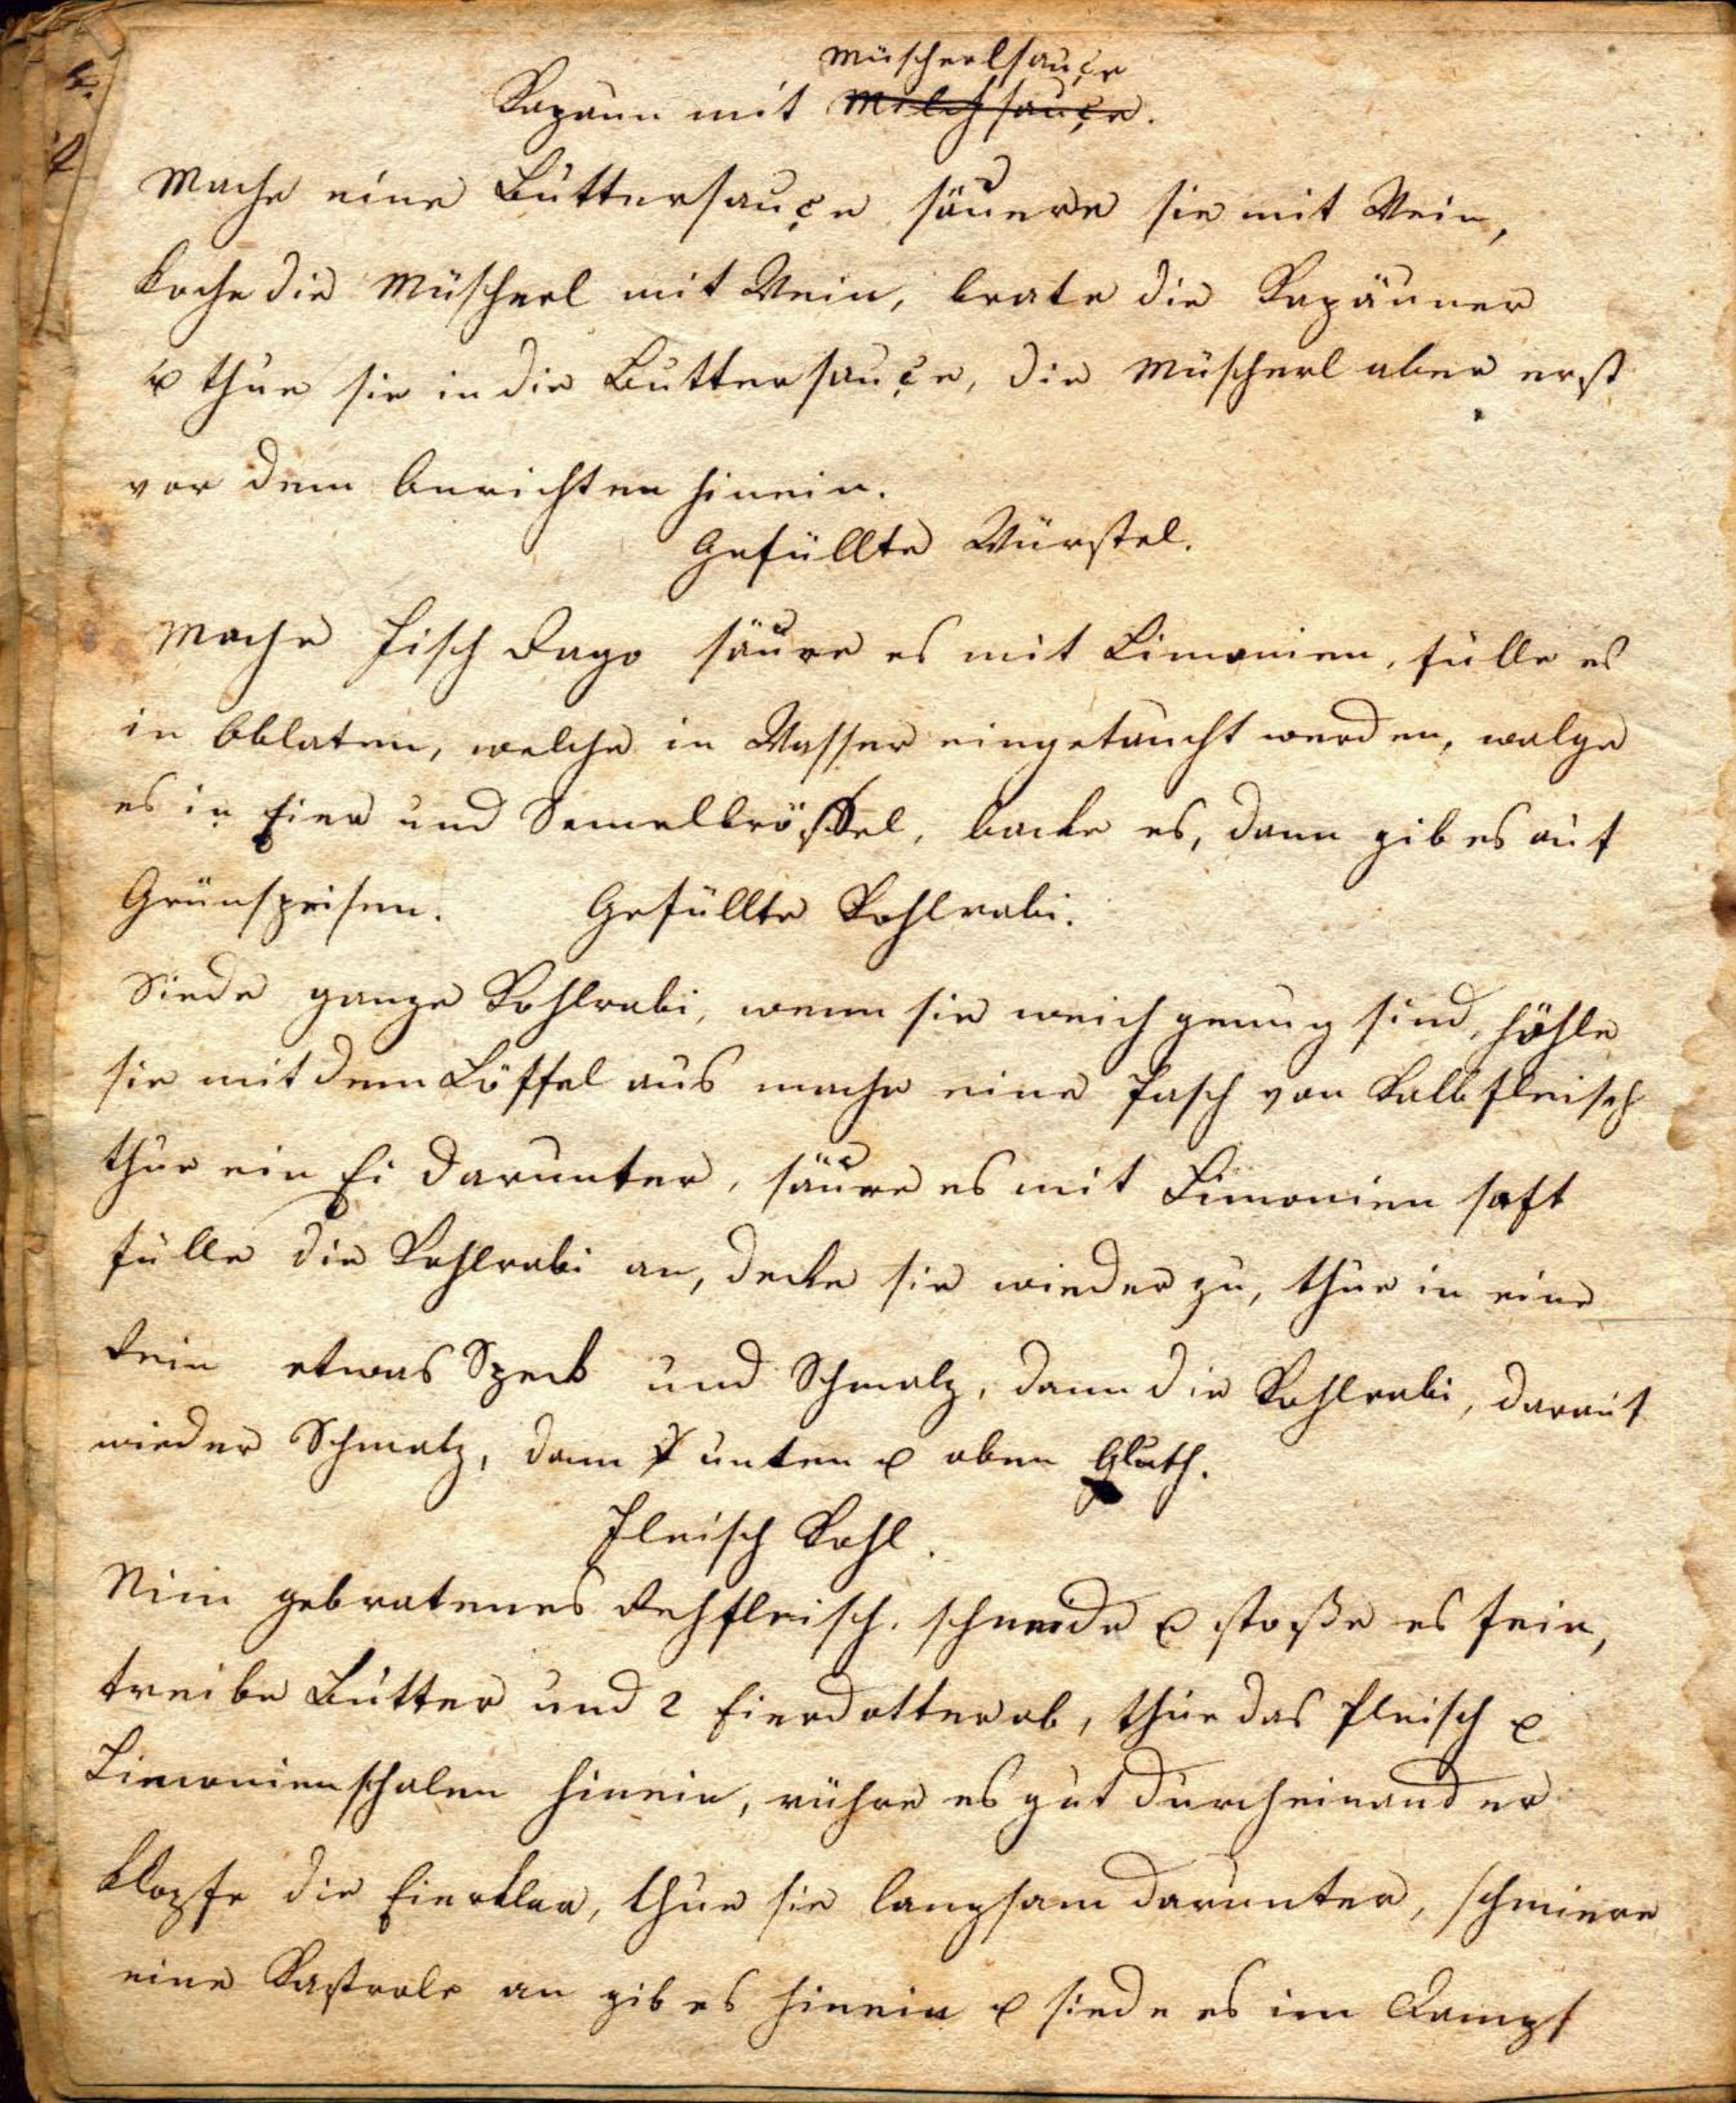 Müscherlsauçe
Kapaun mit Milchsauçe.
Mache eine Buttersauçe säuere sie mit Wein,
koche die Müscherl mit Wein, brate die Kapäuner
u thue sie in die Buttersauçe, die Müscherl aber erst
vor dem Anrichten hinein.
Gefüllte Würstel.
Mache Fisch Rago säure es mit Limonien, fülle es
in Oblaten, welche in Wasser eingetaucht werden, walge
es in Eier und Semelbrößel, backe es, dann gib es auf
Grünspeisen. Gefüllte Kohlrabi.
Siede ganze Kohlrabi, wenn sie weich genug sind, höhle
sie mit dem Löffel aus mache eine Fasch von Kalbfleisch
thue ein Ei darunter, säure es mit Limonien saft
fülle die Kohlrabi an, decke sie wieder zu, thue in eine
Rein etwas Speck und Schmalz, dann die Kohlrabi, darauf
wieder Schmalz, dann unten u oben Gluth.
Fleisch Kohl.
Nim gebratenes Rehfleisch, schneide u stoße es fein,
treibe Butter und 2 Eierdotter ab, thue das Fleisch u
Limonienschalen hinein, rühre es gut durcheinander
klopfe die Eierklar, thue sie langsam darunter, schmiere
eine Kastrole an gib es hinein u siede es im Dampf